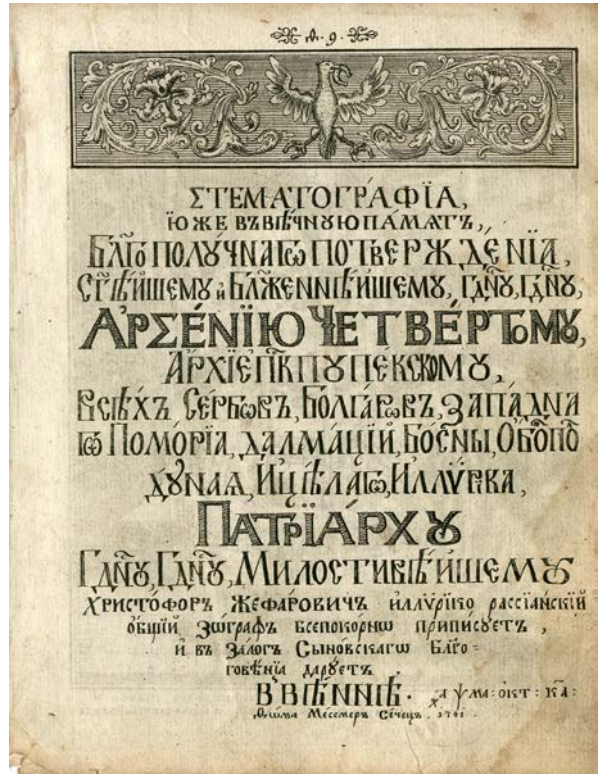 СТЕМАТОГРАФІА,
Ю҆ЖЕ ВЪ ВѢЧНꙊЮ ПА́МАТЬ,
БЛ҃ГОПОЛꙊЧНАГѠ ПОТВЕРЖДЕ́НІА,
СТ҃ѢЙШЕМꙊ и҆ БЛЖ҃ЕННѢЙШЕМꙊ, ГДⷭ҇НꙊ, ГДⷭ҇НꙊ,
АРСЕ́НІЮ ЧЕТВЕ́РТОМꙊ,
А҆РХІЕПК҃ПꙊ ПЕКСКОМꙊ,
ВСѢХЪ СЕ́РБѠВЪ, БОЛГА́РѠВЪ, ЗАПА́ДНА
ГѠ ПОМО́РІА, ДАЛМА́ЦІЙ, БО́СНЫ, О҆БОПО́
ДꙊНАѦ, И ЦѢЛАГѠ, ИЛЛѴ́РІКА,
ПАТРІА́РХꙊ
ГДⷭ҇НꙊ, ГДⷭ҇НꙊ, МИЛОСТИВѢЙШЕМꙊ
ХРИСТО́ФОРЪ ЖЕФА́РОВИЧЪ иллѵ́рїко рассїа́нскїй
о҆́бщїй Зѡгра́фъ всепокорнѡ припи́сꙋетъ,
и҆ въ Зало́гъ Сыно́вскагѡ Бл҃го=
говѣ́нїа да́рꙋетъ.
В ВІѢННѢ. ҂аѱма: окт: к҃а:
Ѳѡма Ме́ссмеръ Сѣчецъ. 1741